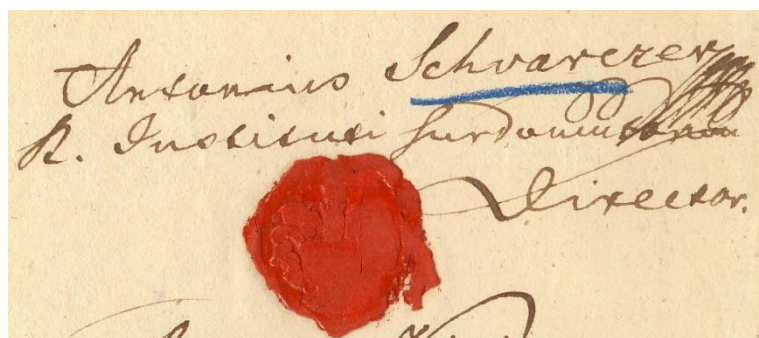 Antonius Schvarczer
R. Instituti Surdomutorum
Director.